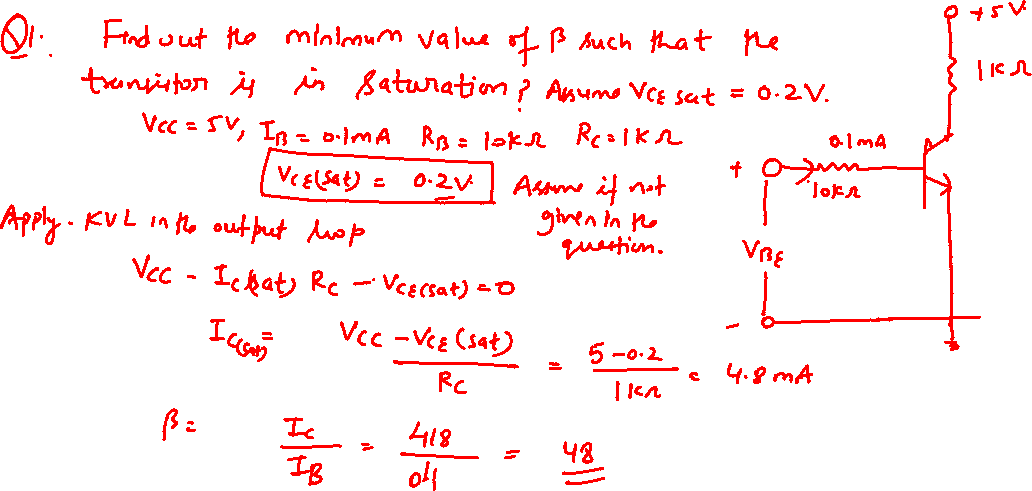 Q1. Find out the minimum value of β such that the
transistor is in saturation? Assume VCE sat = 0.2V.
VCC = 5V, IB = 0.1mA RB = 10kΩ RC = 1KΩ
VCE(sat) = 0.2V. Assume if not
given in the
question.
Apply. KVL in the output loop
VCC - IC(sat) RC - VCE(sat) = 0
IC(sat) = VCC - VCE(sat) / RC = 5-0.2 / 1KΩ = 4.8 mA
β = IC / IB = 4.8 / 0.1 = 48
+5V
1KΩ
0.1mA
+
10kΩ
VBE
-